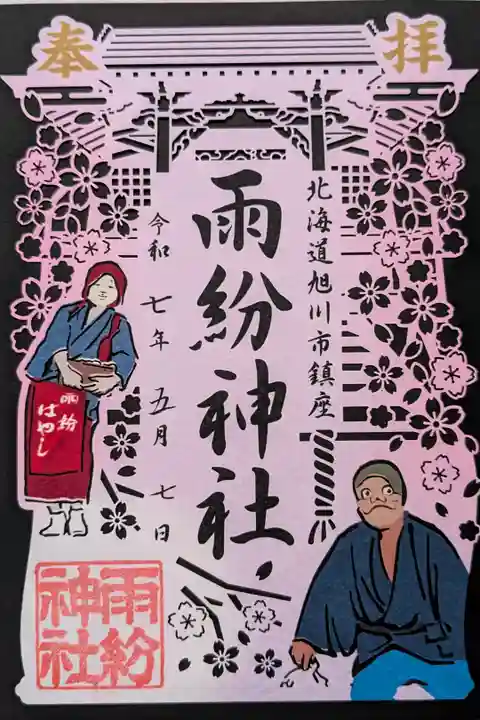 奉拝
北海道旭川市鎮座
雨紛神社
令和七年五月七日
雨紛
はやし
雨紛
神社